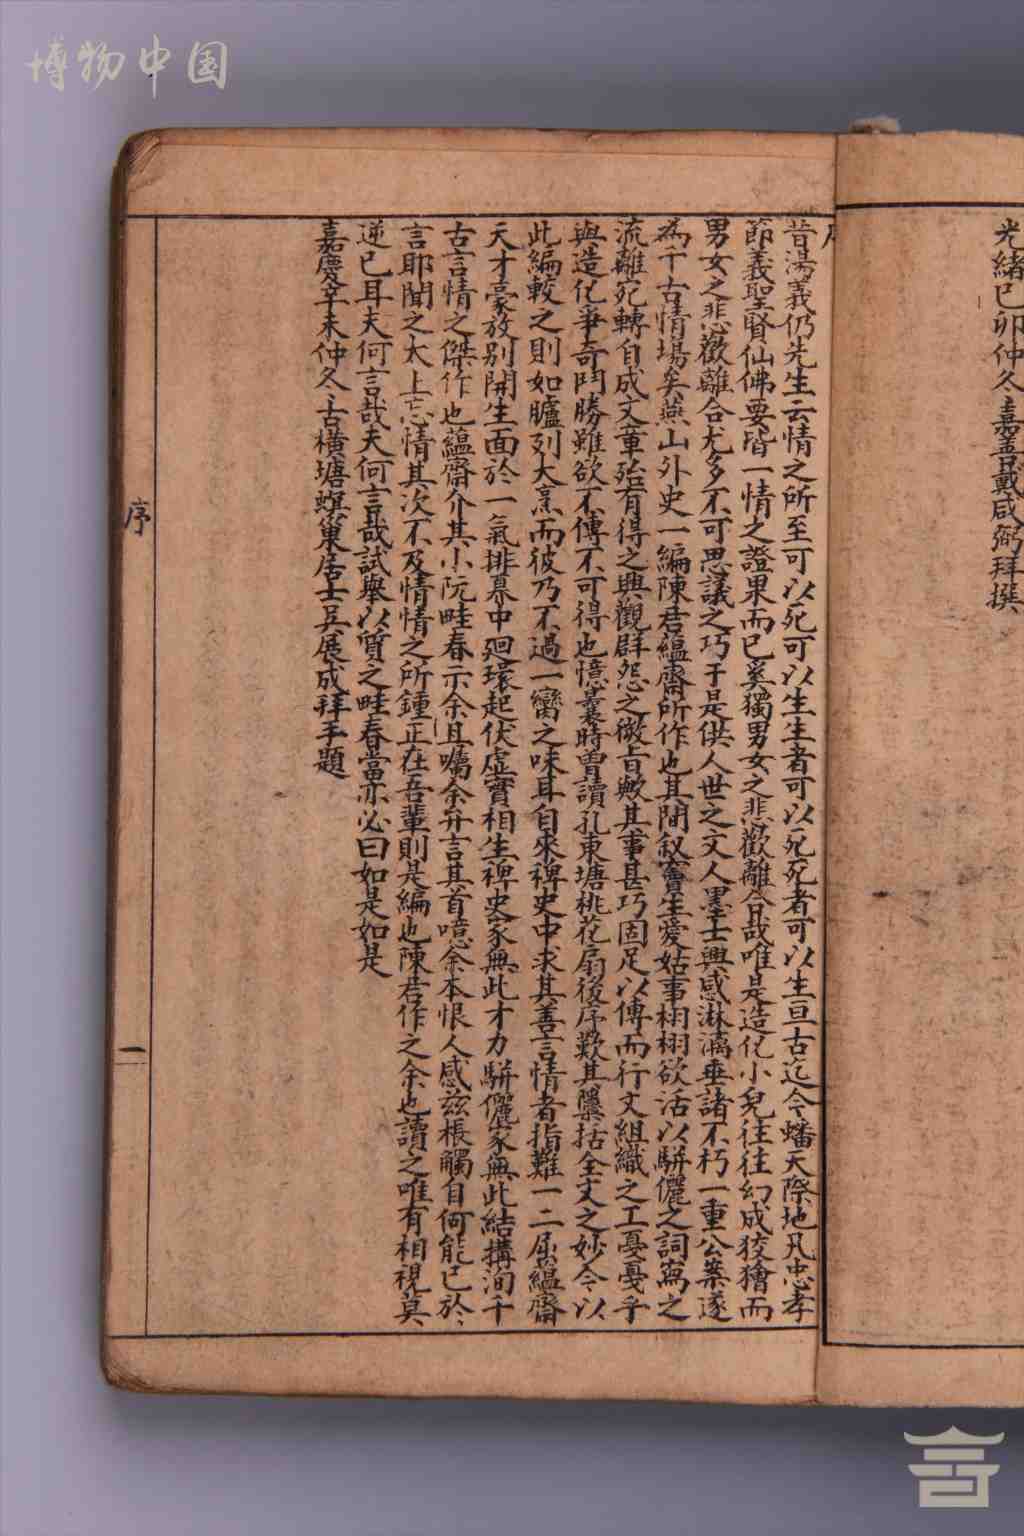 博物中国
光緒己卯仲冬嘉善戴咸弼拜撰
昔湯義仍先生云情之所至可以死可以生生者可以死死者可以生亘古迄今蟠天際地凡忠孝
節義聖賢仙佛要皆一情之證果而已奚獨男女之悲歡離合哉唯是造化小兒往往幻成狡獪而
男女之悲歡離合尤多不可思議之巧于是供人世之文人墨士興感淋漓垂諸不朽一重公案遂
為千古情場矣燕山外史一編陳君蘊齋所作也其間叙竇生愛姑事栩栩欲活以駢儷之詞寫之
流離宛轉自成文章殆有得之興觀群怨之微旨歟其事甚巧固足以傳而行文組織之工戛戛乎
與造化爭奇鬥勝雖欲不傳不可得也憶曩時曾讀孔東塘桃花扇後序歎其櫽括全文之妙今以
此編較之則如臚列大烹而彼乃不過一臠之味耳自來稗史中求其善言情者指難一二屈蘊齋
天才豪放別開生面於一氣排奡中廻環起伏虛實相生稗史家無此才力駢儷家無此結搆洵千
古言情之傑作也蘊齋介其小阮畦春示余且囑余弁言其首噫余本恨人感茲棖觸自何能已於
言耶聞之太上忘情其次不及情情之所鍾正在吾輩則是編也陳君作之余也讀之唯有相視莫
逆已耳夫何言哉夫何言哉試舉以質之畦春當亦必曰如是如是
嘉慶辛未仲冬古橫塘螟巢居士吳展成拜手題
序
一